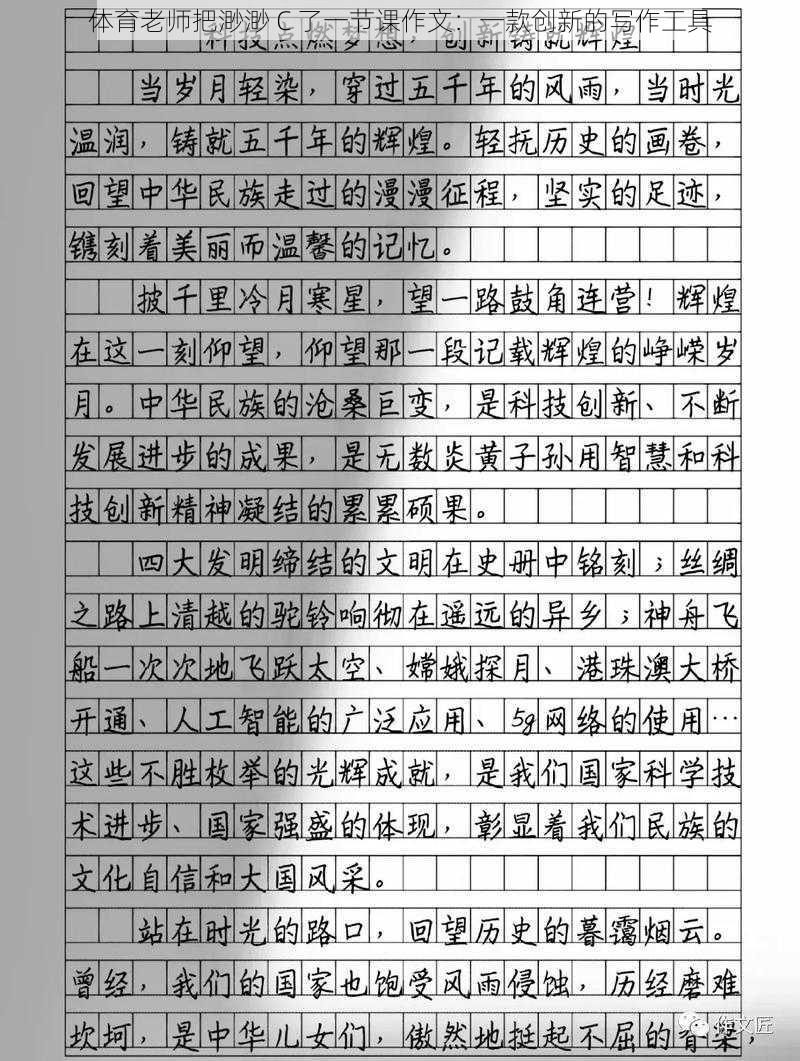 体育老师把渺渺 C 了一节课作文：、一款创新的写作工具
科技点燃梦想，创新铸就辉煌
当岁月轻染，穿过五千年的风雨，当时光
温润，铸就五千年的辉煌。轻抚历史的画卷，
回望中华民族走过的漫漫征程，坚实的足迹，
镌刻着美丽而温馨的记忆。
披千里冷月寒星，望一路鼓角连营！辉煌
在这一刻仰望，仰望那一段记载辉煌的峥嵘岁
月。中华民族的沧桑巨变，是科技创新、不断
发展进步的成果，是无数炎黄子孙用智慧和科
技创新精神凝结的累累硕果。
四大发明缔结的文明在史册中铭刻；丝绸
之路上清越的驼铃响彻在遥远的异乡；神舟飞
船一次次地飞跃太空、嫦娥探月、港珠澳大桥
开通、人工智能的广泛应用、5g网络的使用…
这些不胜枚举的光辉成就，是我们国家科学技
术进步、国家强盛的体现，彰显着我们民族的
文化自信和大国风采。
站在时光的路口，回望历史的暮霭烟云。
曾经，我们的国家也饱受风雨侵蚀，历经磨难
坎坷，是中华儿女们，傲然地挺起不屈的脊梁，
作文匠